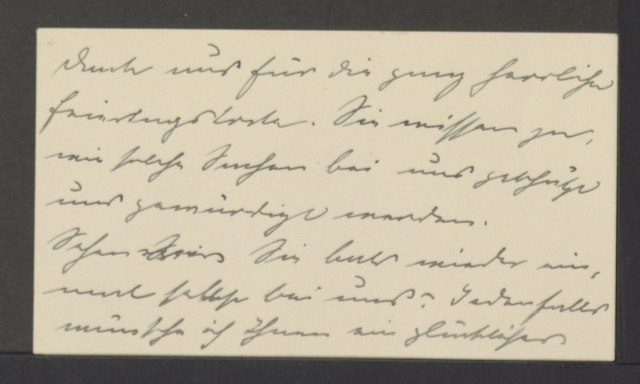 Dank uns für die ganz herrliche
Feiertagstorte. Sie wissen ja,
wie solche Sachen bei uns geschätzt
und gewürdigt werden.
Sehen wir Sie bald wieder ein-
mal selbst bei uns? Jedenfalls
wünsche ich Ihnen ein glückliches